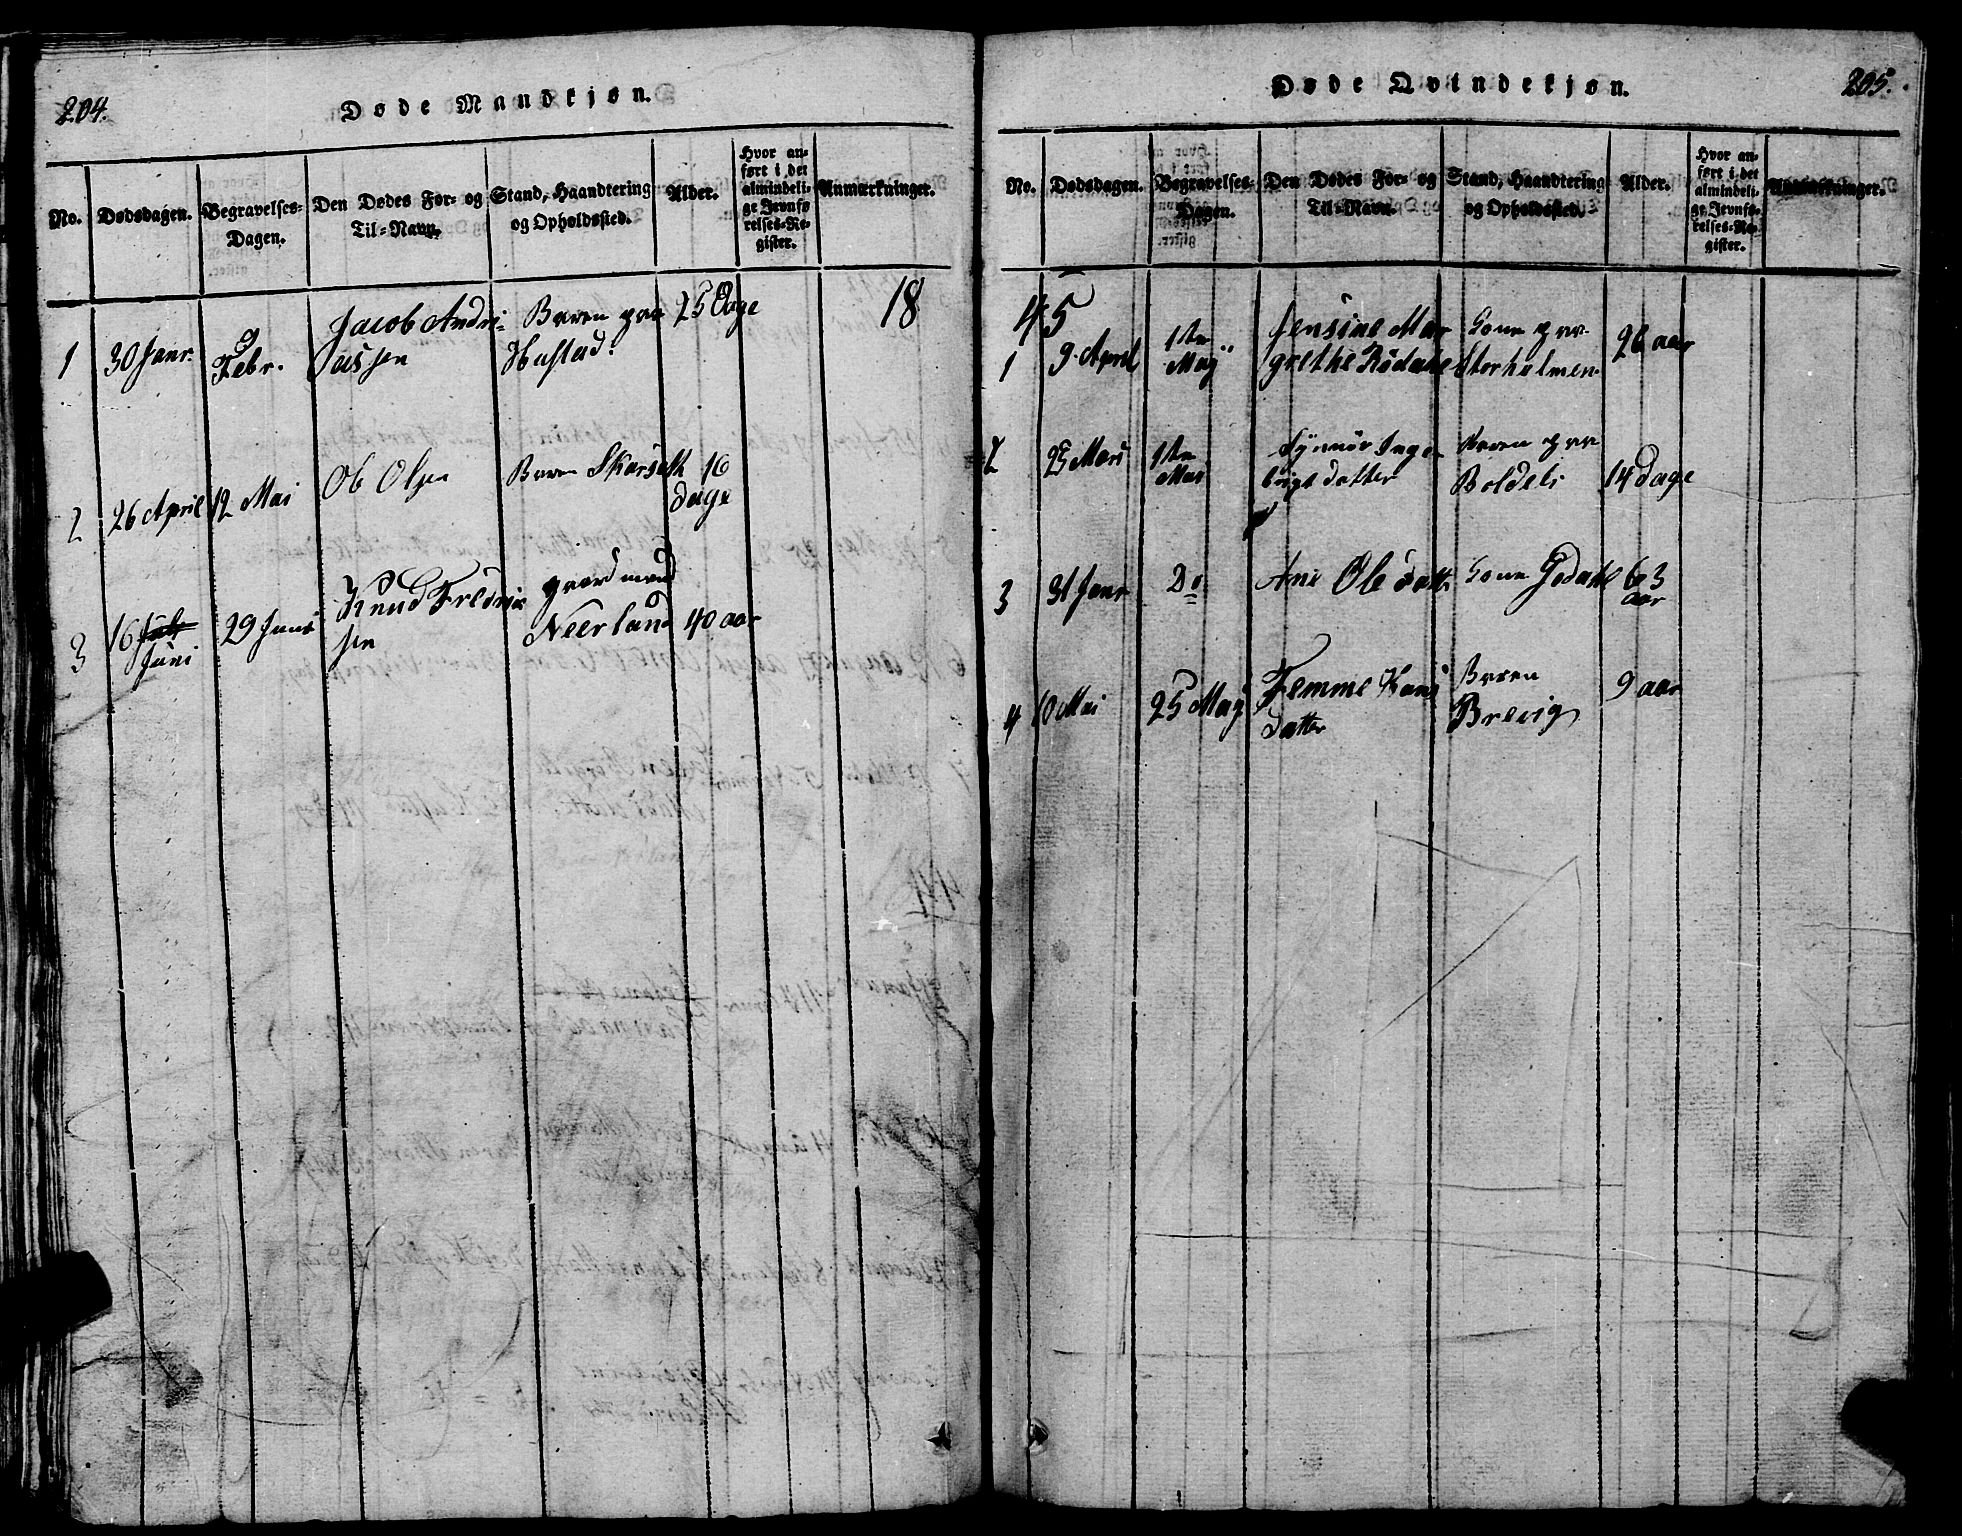 204.
Døde Mandkjøn.
No.
Dødsdagen.
Begravelses-
Dagen.
Den Dødes For- og
Til-Navn.
Stand, Haandtering
og Opholdssted.
Alder.
Hvor an-
ført i det
almindeli-
ge Jevnfø-
relses-Re-
gister.
Anmærkninger.
18
1
30 Janr
9
Febr.
Jacob Andri-
assen
Barn paa
Hustad.
25 Dage
2
26 April
12 Mai
Ob Olsen
Barn Skarset
16
dage
3
16 Juli
Juni
29 Juni
Knud Fredrik
sen
gaardmand
Neerland
40 aar
205.
Døde Qvindekjøn.
No.
Dødsdagen.
Begravelses-
Dagen.
Den Dødes For- og
Til-Navn.
Stand, Haandtering
og Opholdssted.
Alder.
Hvor an-
ført i det
almindeli-
ge Jevnfø-
relses-Re-
gister.
Anmærkninger.
45
1
9 April
1ste
Maj
Jensine Mar
grethe Rødahl
Kone paa
Storholmen
26 aar
2
25 Mars
1ste
Mai
Synnøv Inge-
brigtdatter
Barn paa
Boldeli
14 dage
3
31 Janr
Do
Ane Ole datt
Kone
63
aar
4
10 Mai
25 Maj
Femme Hans
datter
Barn
Brevig
9 aar